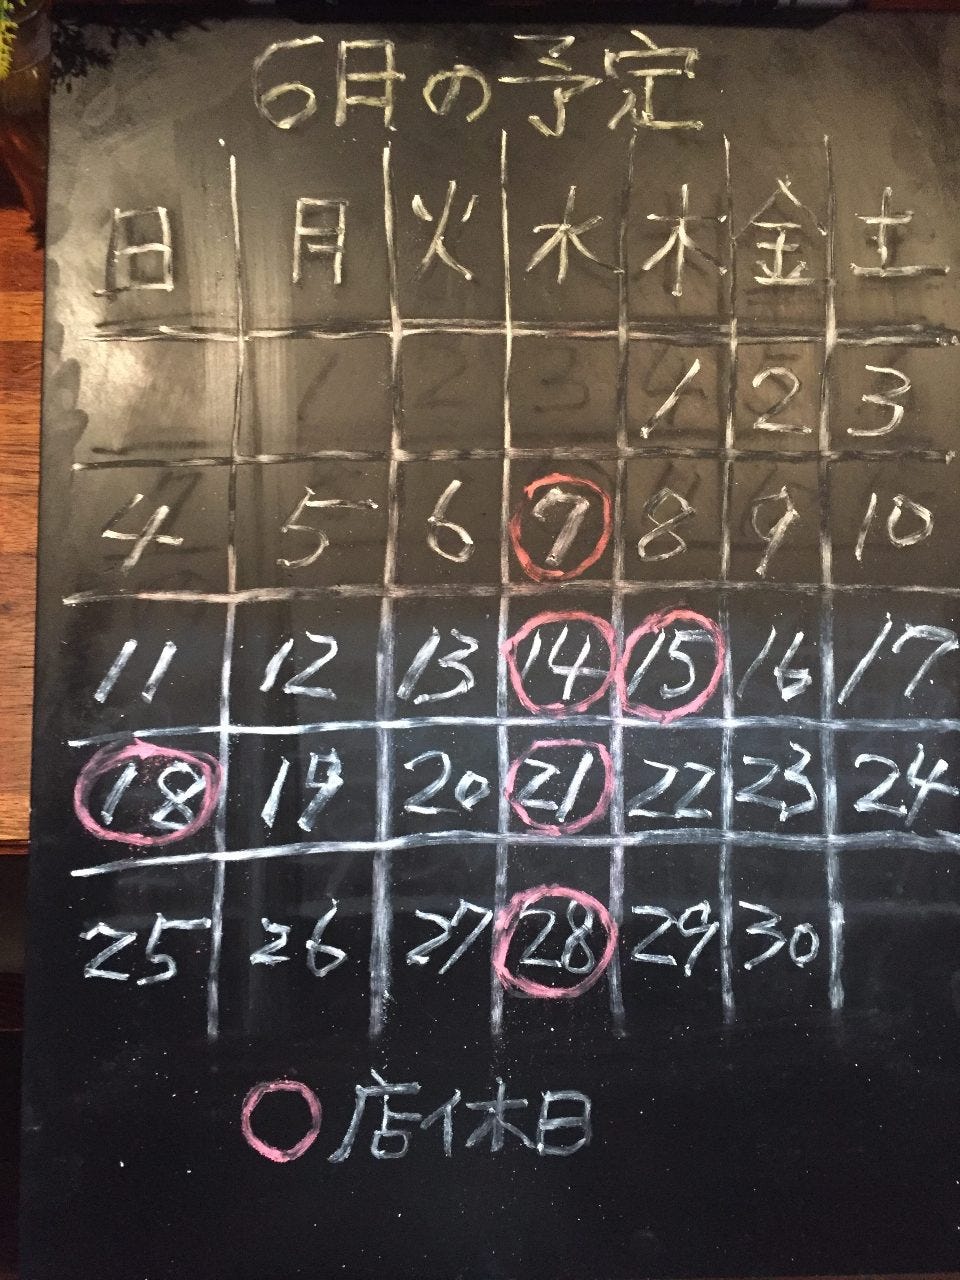 6月の予定
日 月 火 水 木 金 土
1 2 3
4 5 6 7 8 9 10
11 12 13 14 15 16 17
18 19 20 21 22 23 24
25 26 27 28 29 30
店休日